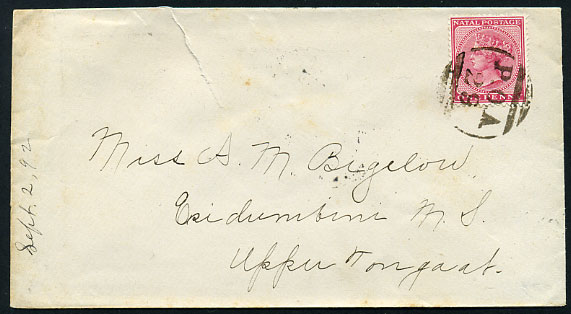 NATAL POSTAGE
ONE PENNY
Miss A. M. Bigelow
Esidumbini M. S.
Upper Tongaat.
Sept. 2, 92